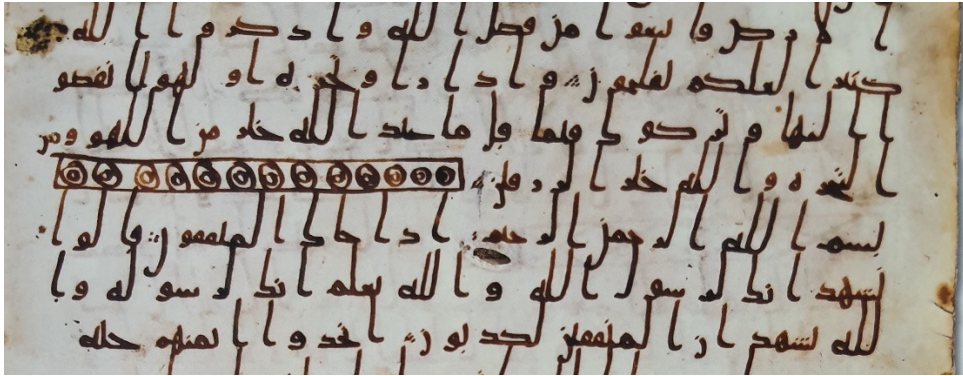 الارض وابتغوا من فضل الله واذكروا الله
كثيرا لعلكم تفلحون واذا راوا تجرة او لهوا انفضو
ا اليها وتركوك قيما قل ما عند الله خير من اللهو ومن
التجرة والله خير الرزقين
بسم الله الرحمن الرحيم اذا جاك المنفقون قالوا
نشهد انك لرسول الله والله يعلم انك لرسوله وا
لله يشهد ان المنفقين لكذبون اتخذوا ايمنهم جنة